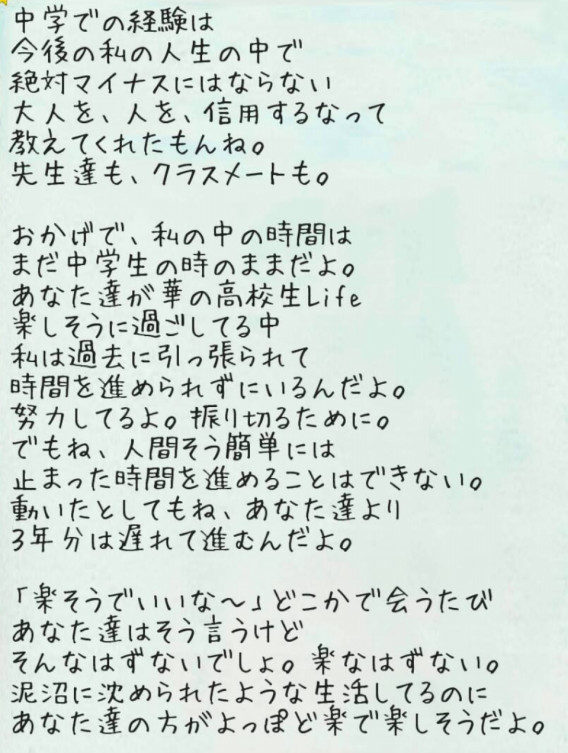 中学での経験は
今後の私の人生の中で
絶対マイナスにはならない
大人を、人を、信用するなって
教えてくれたもんね。
先生達も、クラスメートも。
おかげで、私の中の時間は
まだ中学生の時のままだよ。
あなた達が華の高校生Life
楽しそうに過ごしてる中
私は過去に引っ張られて
時間を進められずにいるんだよ。
努力してるよ。振り切るために。
でもね、人間そう簡単には
止まった時間を進めることはできない。
動いたとしてもね、あなた達より
3年分は遅れて進むんだよ。
「楽そうでいいな〜」どこかで会うたび
あなた達はそう言うけど
そんなはずないでしょ。楽なはずない。
泥沼に沈められたような生活してるのに
あなた達の方がよっぽど楽で楽しそうだよ。